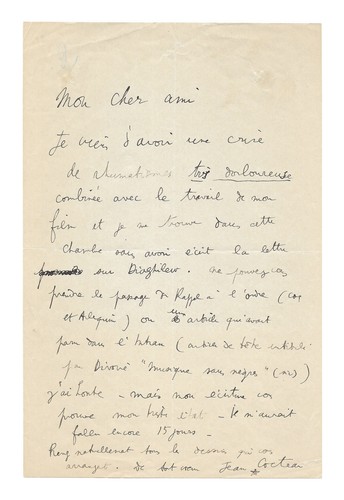 Mon cher ami
Je viens d'avoir une crise
de rhumatismes très douloureuse
combinée avec le travail de mon
film et je me trouve dans cette
chambre sans avoir écrit la lettre
sur Diaghilew. Ne pouvez vous
prendre le passage du Rappel à l'ordre (coq
et Arlequin) ou un article qui avait
paru dans l'Intran (
par Divoire "musique sans nègres" (
j'ai honte - mais mon écriture vous
prouve mon triste état - Il m'aurait
fallu encore 15 jours -
naturellement tous les dessins qui vous
arrangent. de tout coeur Jean Cocteau